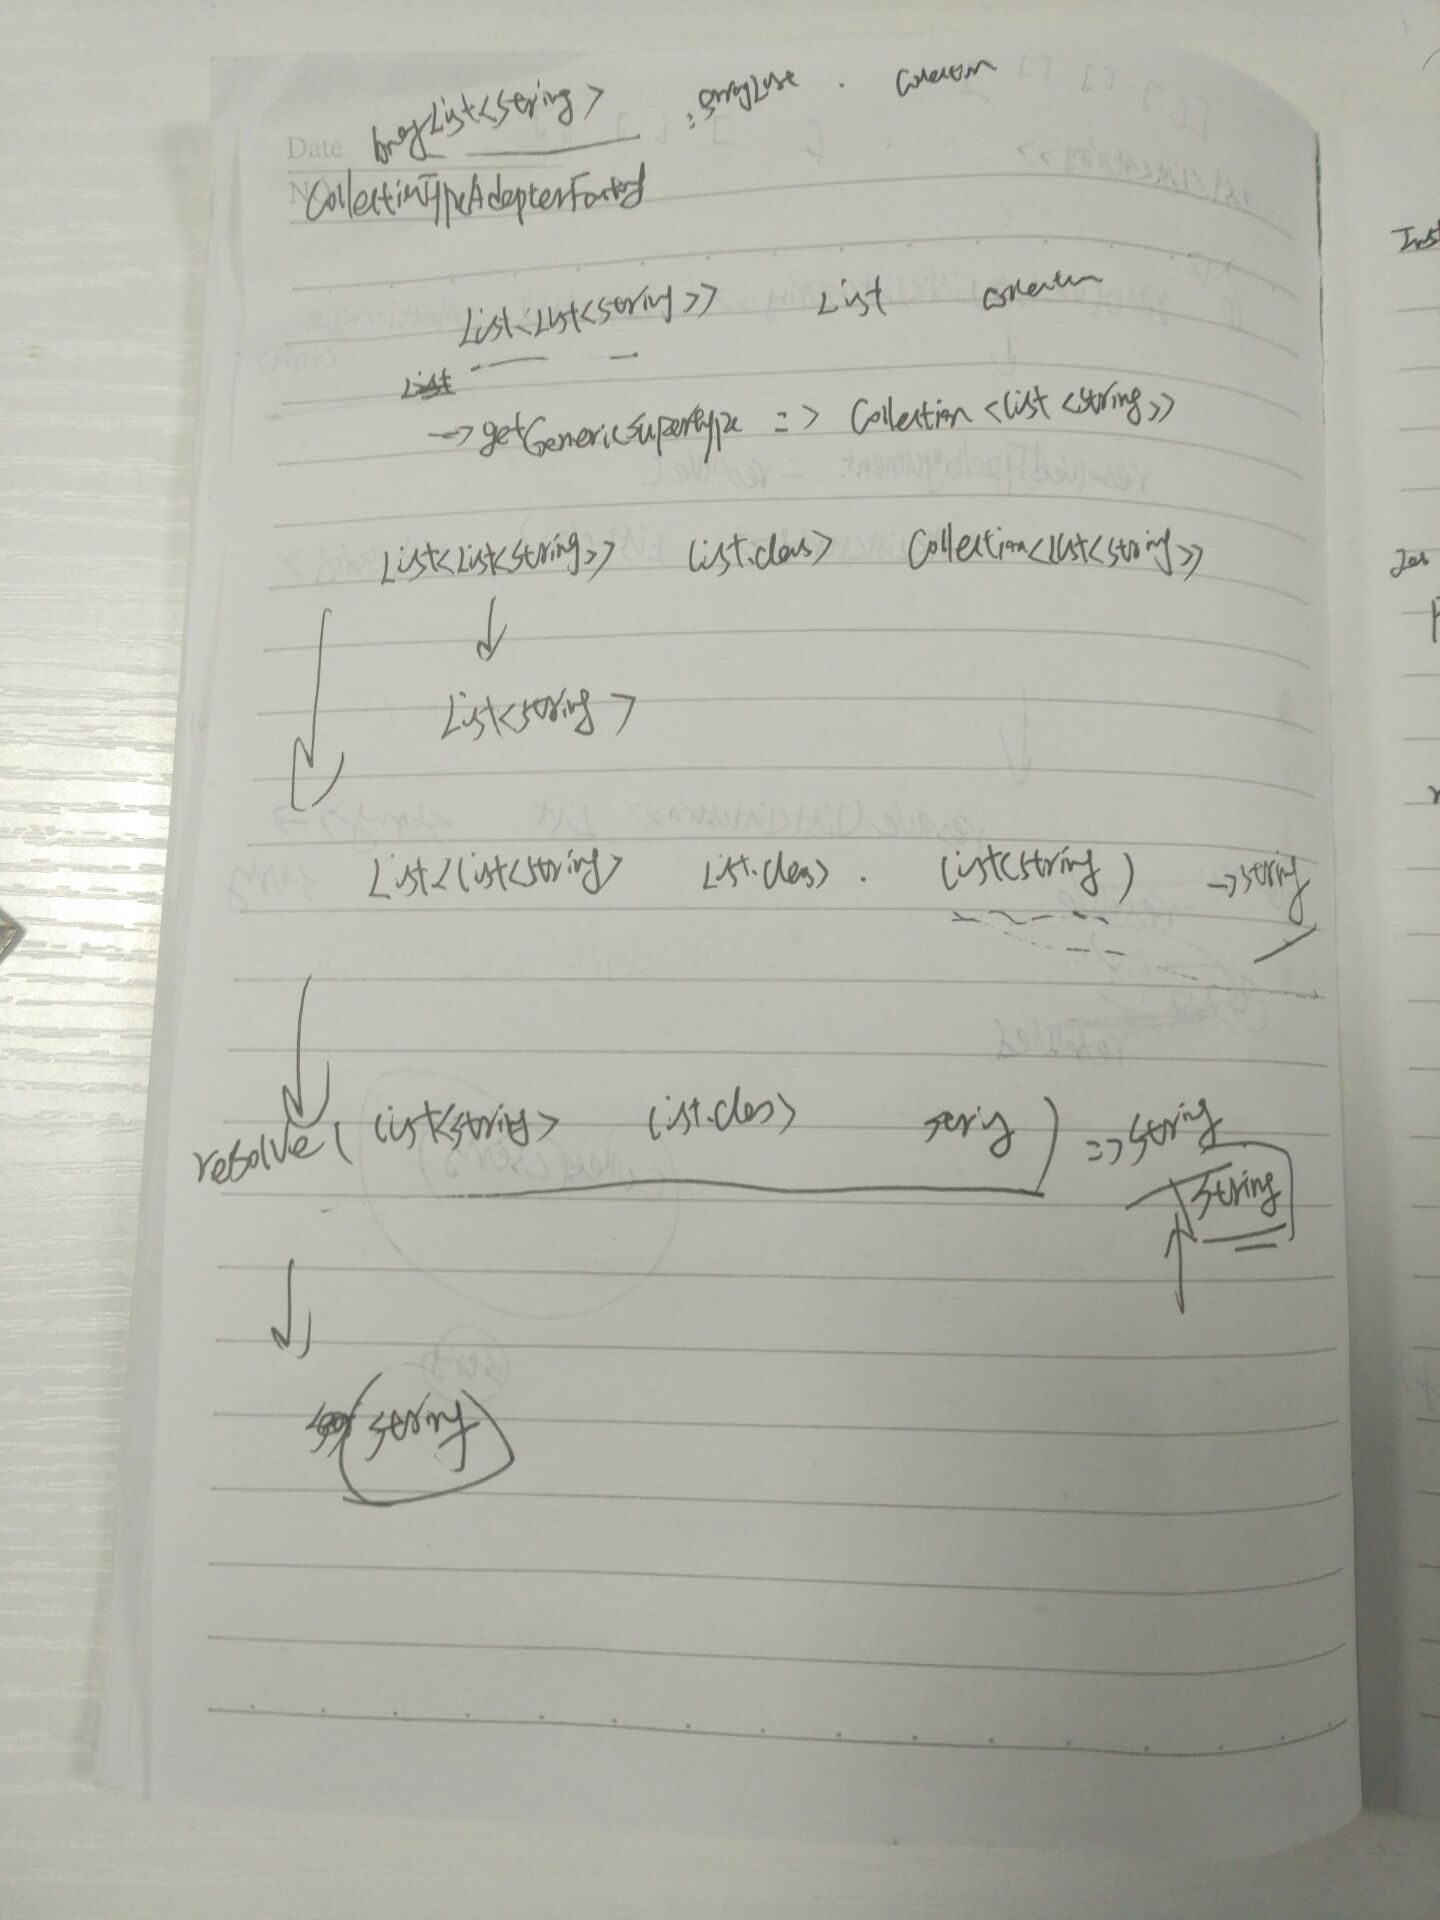 ArrayList<String> ArrayList . Collection
Date
CollectionTypeAdapterFactory
List<List<String>> List Collection
List
-> getGenericSupertype => Collection <List <String>>
List<List<String>> List.class> Collection<List<String>>
List<String>
List<List<String> List.class> . List<String) -> String
resolve( List<String> List.class> String ) => String
String
String
Inst